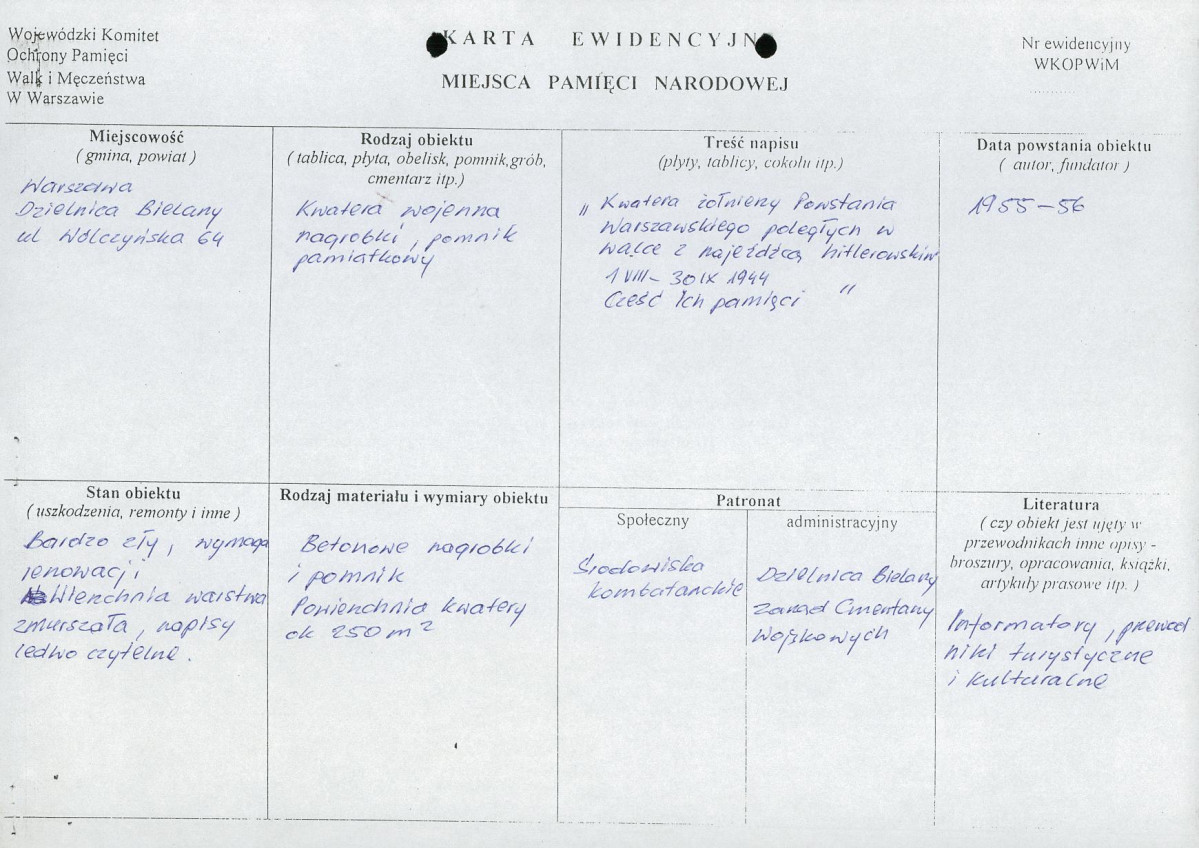 Wojewódzki Komitet
Ochrony Pamięci
Walk i Męczeństwa
W Warszawie
KARTA EWIDENCYJN
MIEJSCA PAMIĘCI NARODOWEJ
Nr ewidencyjny
WKOPWiM
Miejscowość
( gmina, powiat )
Warszawa
Dzielnica Bielany
ul Wólczyńska 64
Rodzaj obiektu
( tablica, płyta, obelisk, pomnik,grób,
cmentarz itp.)
Kwatera wojenna
nagrobki, pomnik
pamiatkowy
Treść napisu
(płyty, tablicy, cokołu itp.)
„ Kwatera żołnierzy Powstania
Warszawskiego poległych w
walce z najeźdźcą hitlerowskim
1 VIII - 30 IX 1944
Cześć Ich pamięci "
Data powstania obiektu
( autor, fundator )
1955-56
Stan obiektu
( uszkodzenia, remonty i inne )
Bardzo zły, wymaga
renowacji
Wierzchnia warstwa
zmurszała, napisy
ledwo czytelne.
Rodzaj materiału i wymiary obiektu
Betonowe nagrobki
i pomnik
Powierzchnia kwatery
ok 250 m²
Patronat
Społeczny
Środowiska
kombatanckie
administracyjny
Dzielnica Bielany
Zarząd Cmentarzy
Wojskowych
Literatura
( czy obiekt jest ujęty w
przewodnikach inne opisy -
broszury, opracowania, książki,
artykuły prasowe itp. )
Informatory, przewod
niki turystyczne
i kulturalne